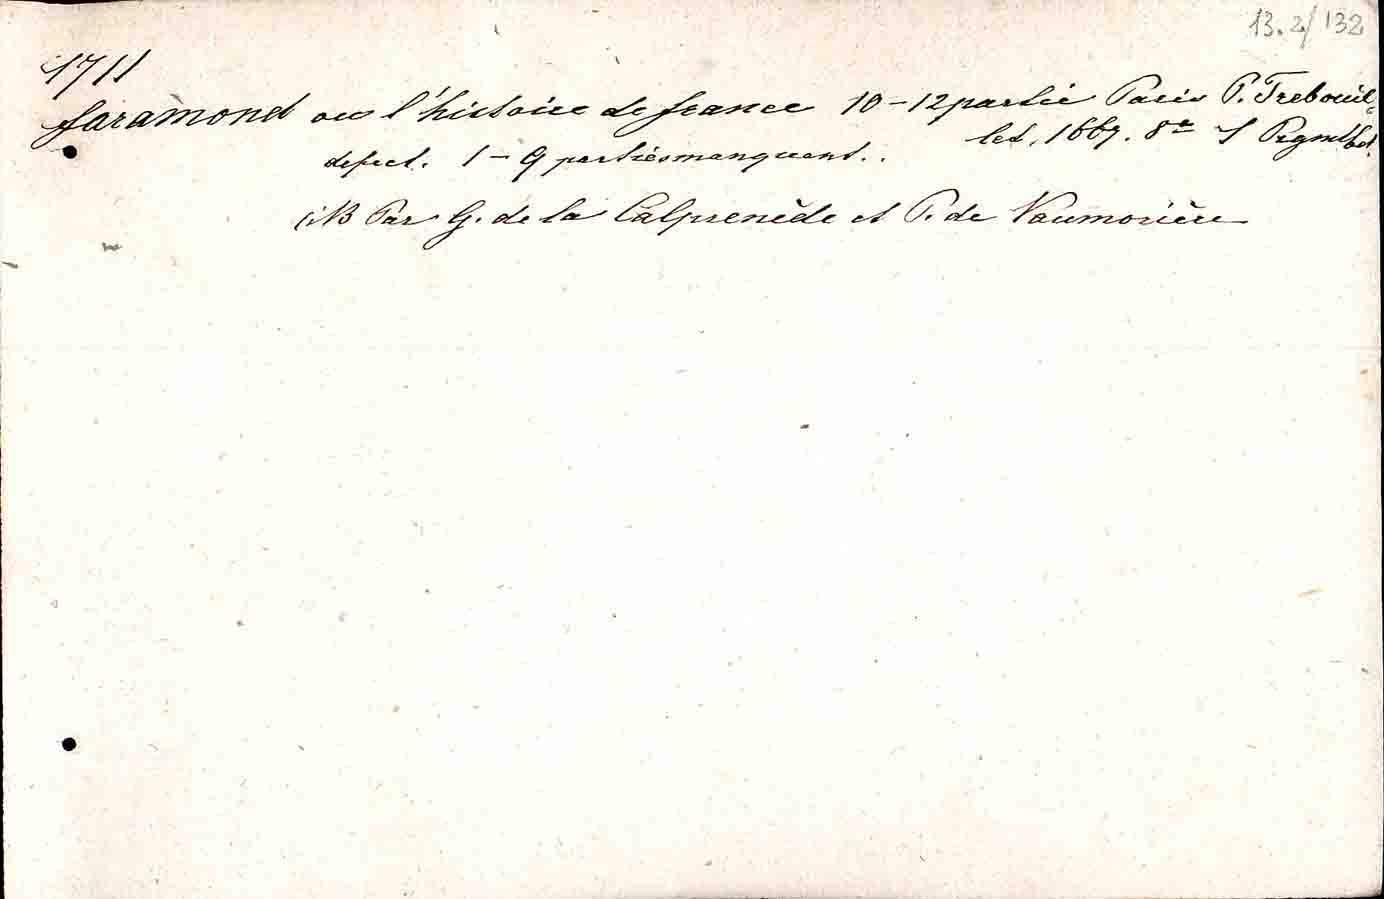 13.2/132
1711
faramond ou l'histoire de france 10-12 partie Paris P. Trebouil-
let, 1667. 8° 1 Prgmtbd.
defect. 1-9 parties manquent.
NB Par G. de la Calprenède et P. de Vaumorière